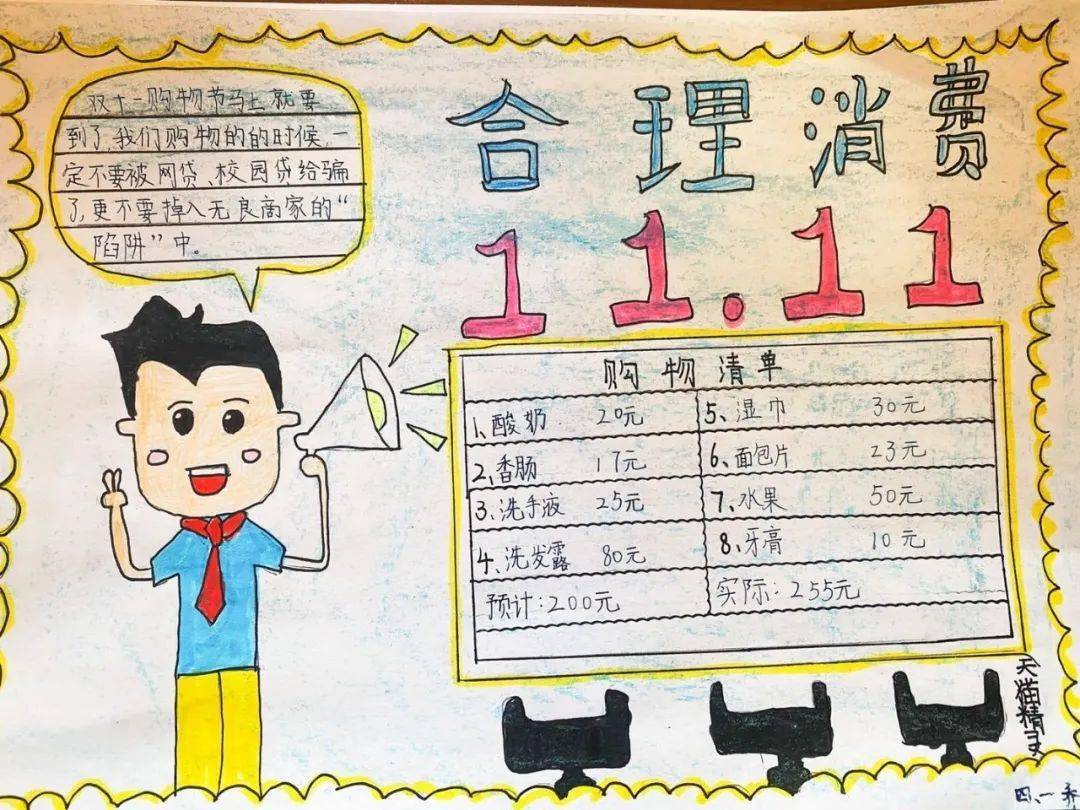 双十一购物节马上就要
到了,我们购物的的时候,一
定不要被网贷、校园贷给骗
了,更不要掉入无良商家的“
陷阱”中。
合理消费
11.11
购物清单
1、酸奶 20元
2、香肠 17元
3、洗手液 25元
4、洗发露 80元
预计:200元
5、湿巾 30元
6、面包片 23元
7、水果 50元
8、牙膏 10元
实际:255元
天猫精灵
四、一